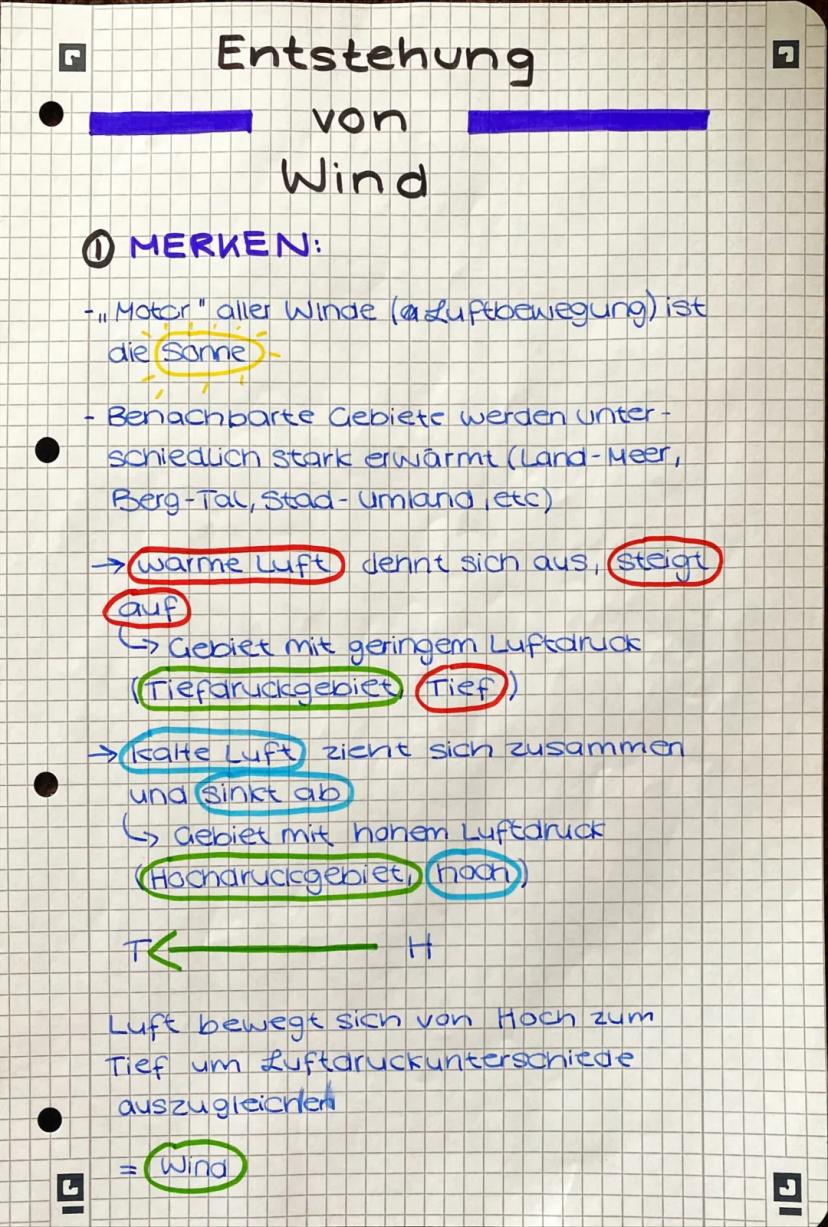 Entstehung
von
Wind
① MERKEN:
- „Motor" aller Winde (Luftbewegung) ist
die Sonne
- Benachbarte Gebiete werden unter-
schiedlich stark erwärmt (Land-Meer,
Berg-Tal, Stad-Umland, etc)
→ warme Luft dehnt sich aus, steigt
auf
↳ Gebiet mit geringem Luftdruck
(Tiefdruckgebiet, Tief)
→ kalte Luft zieht sich zusammen
und sinkt ab
↳ Gebiet mit hohem Luftdruck
(Hochdruckgebiet, hoch)
T ← H
Luft bewegt sich von Hoch zum
Tief um Luftdruckunterschiede
auszugleichen
= Wind